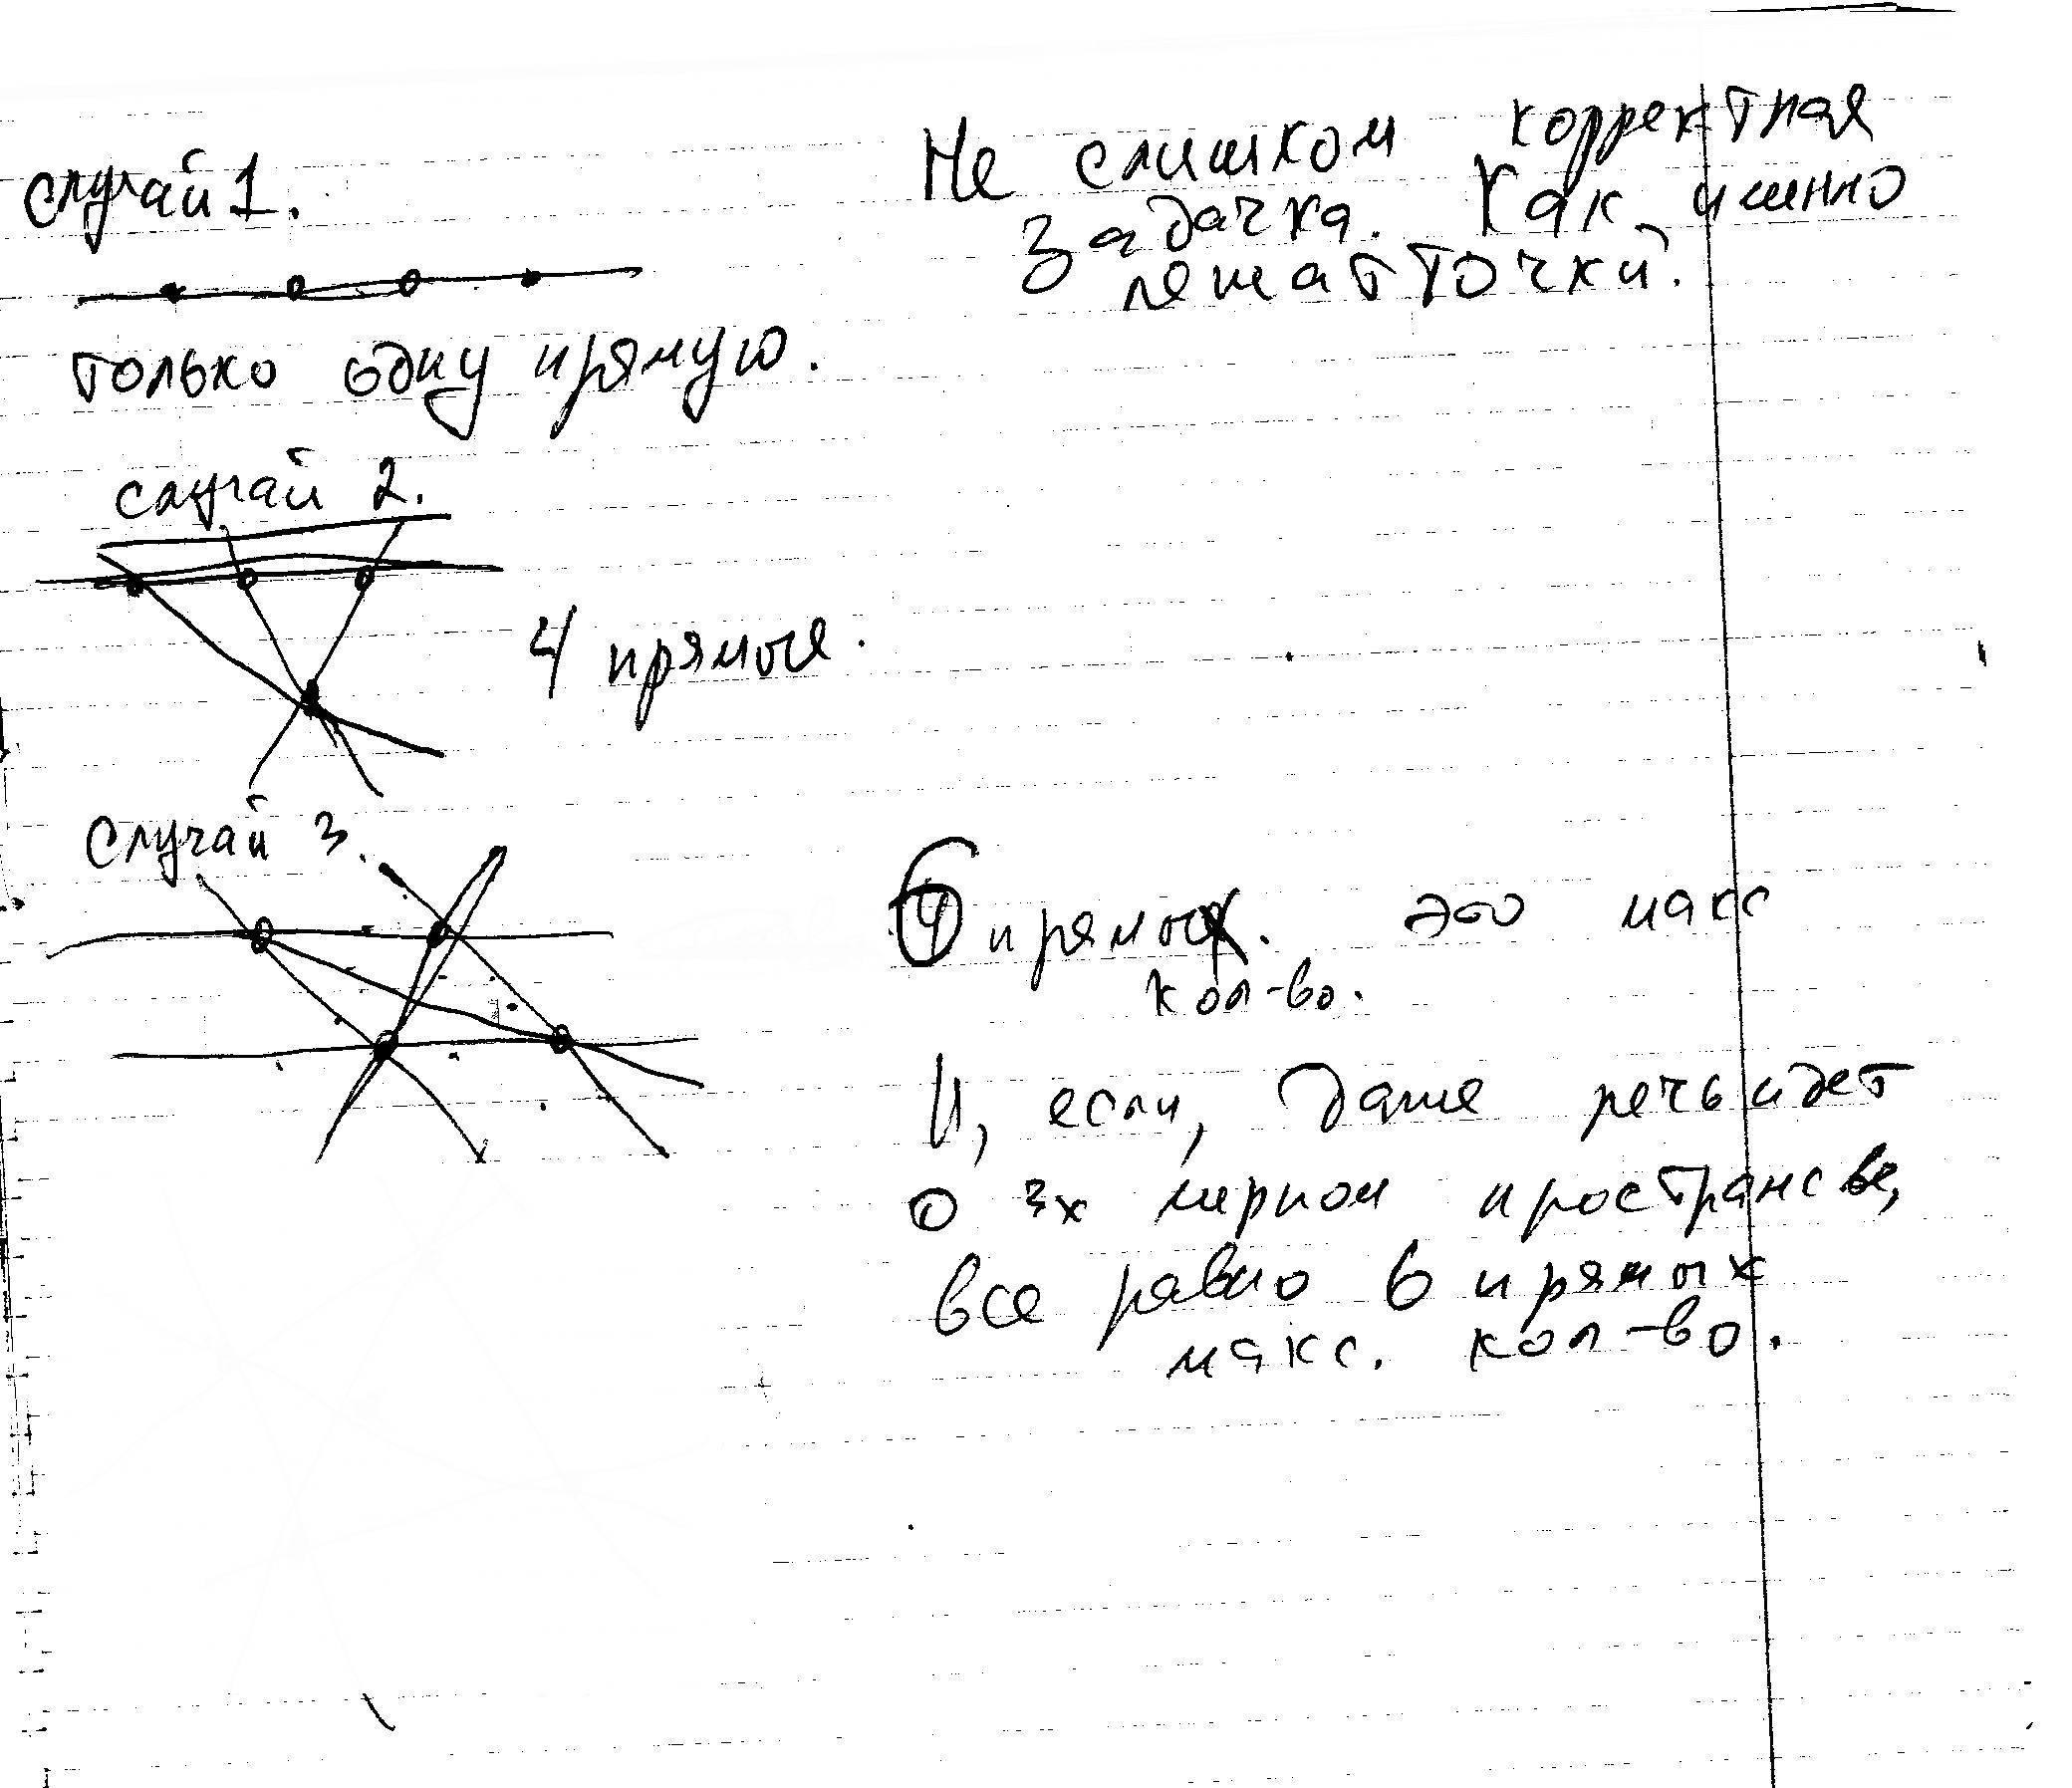 Не слишком корректная
задачка. Как именно
лежат точки.
случай 1.
только одну прямую.
случай 2.
4 прямые.
Случай 3.
6 прямых. это макс
кол-во.
И, если, даже речь идет
о 3х мерном пространсве,
все равно 6 прямых
макс. кол-во.